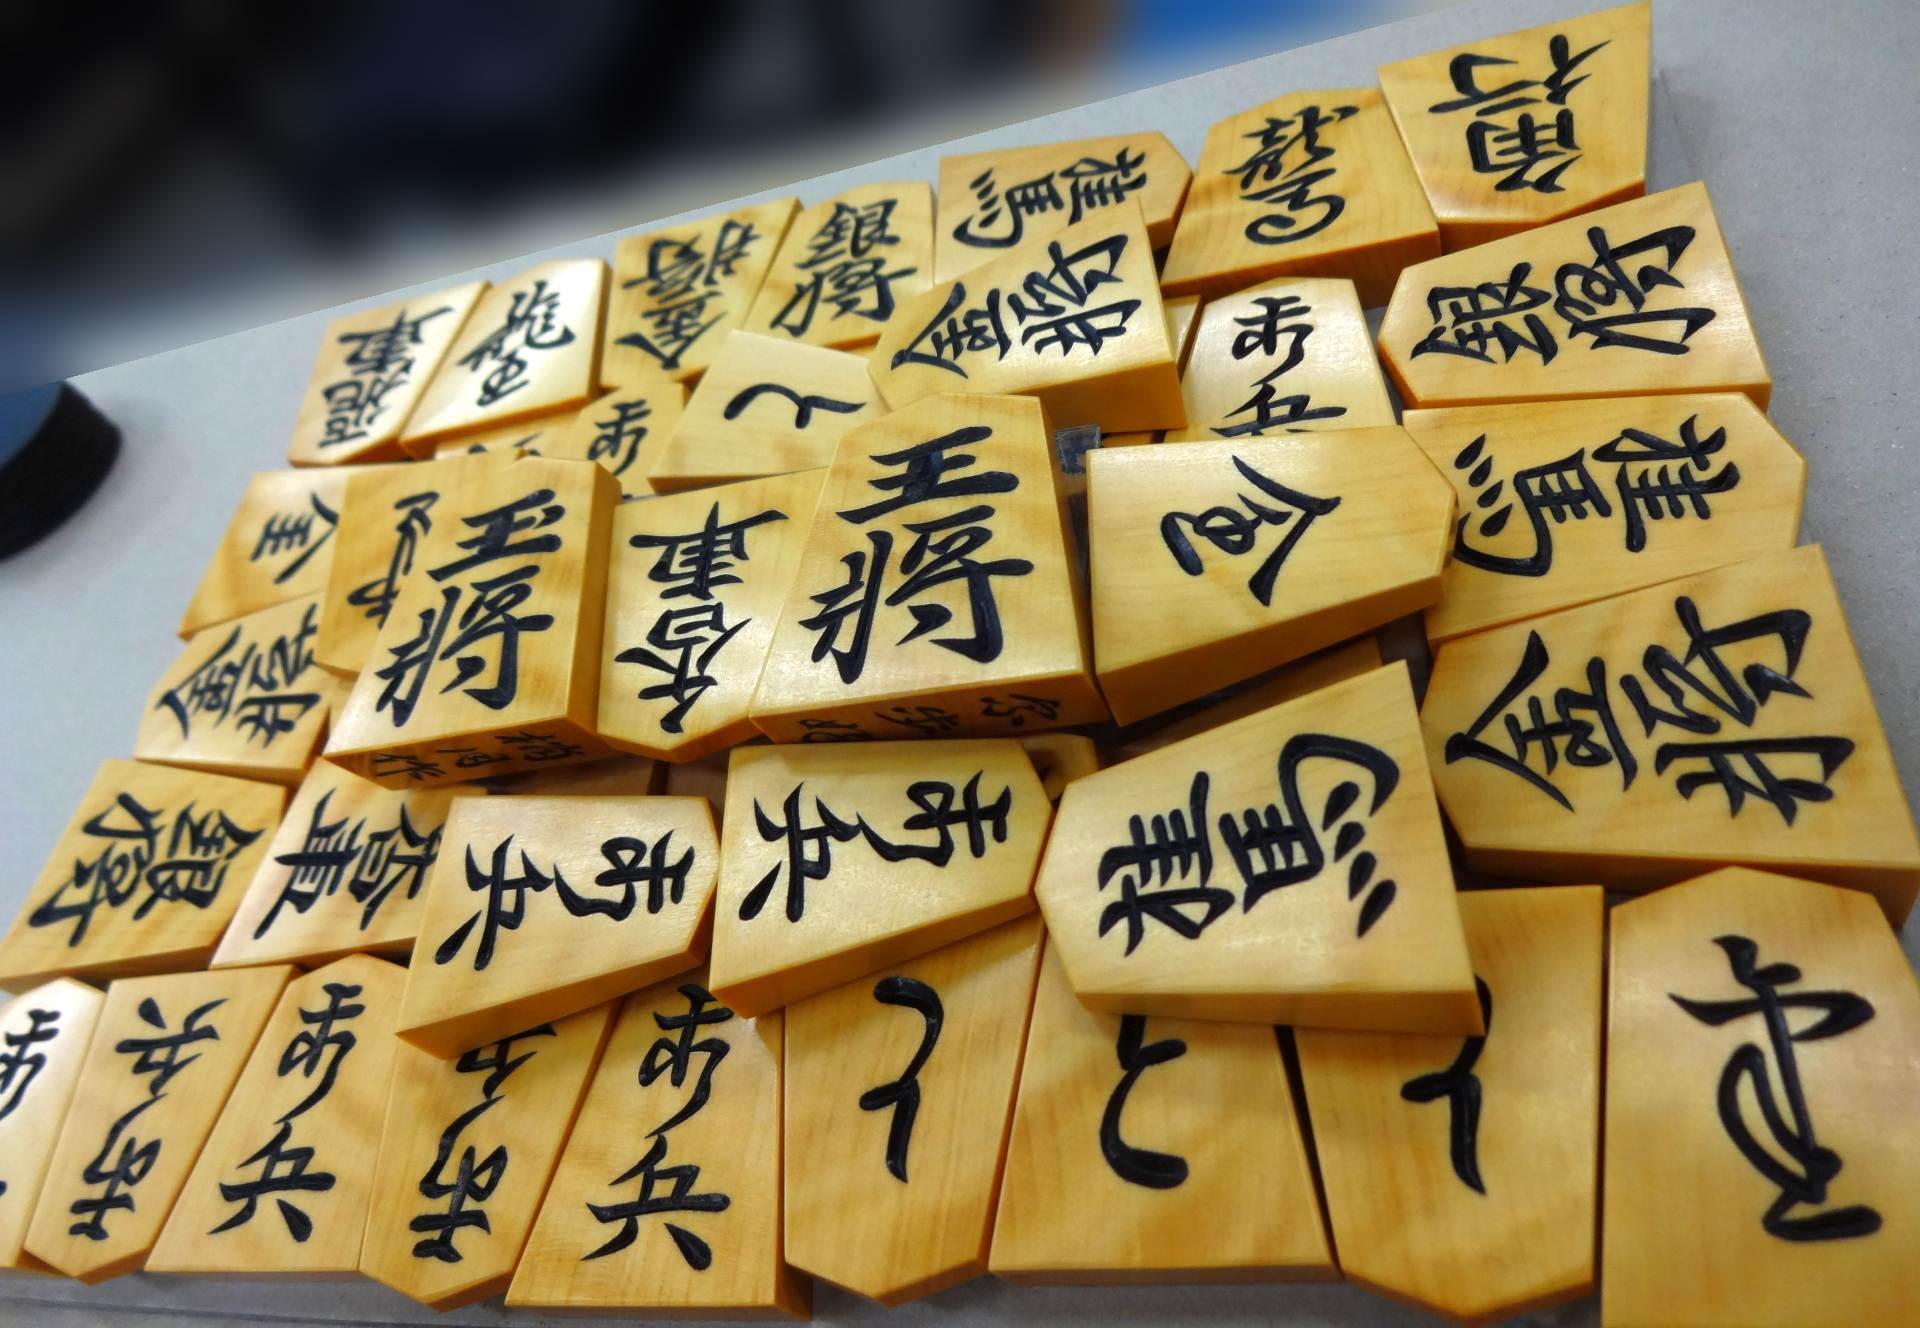 角行
龍馬
桂馬
銀将
金将
龍王
飛車
銀将
歩兵
金将
と
歩
王将
玉将
香車
金
桂馬
金
金将
金将
銀将
香車
歩兵
歩兵
桂馬
歩兵
歩兵
歩兵
歩兵
と
と
と